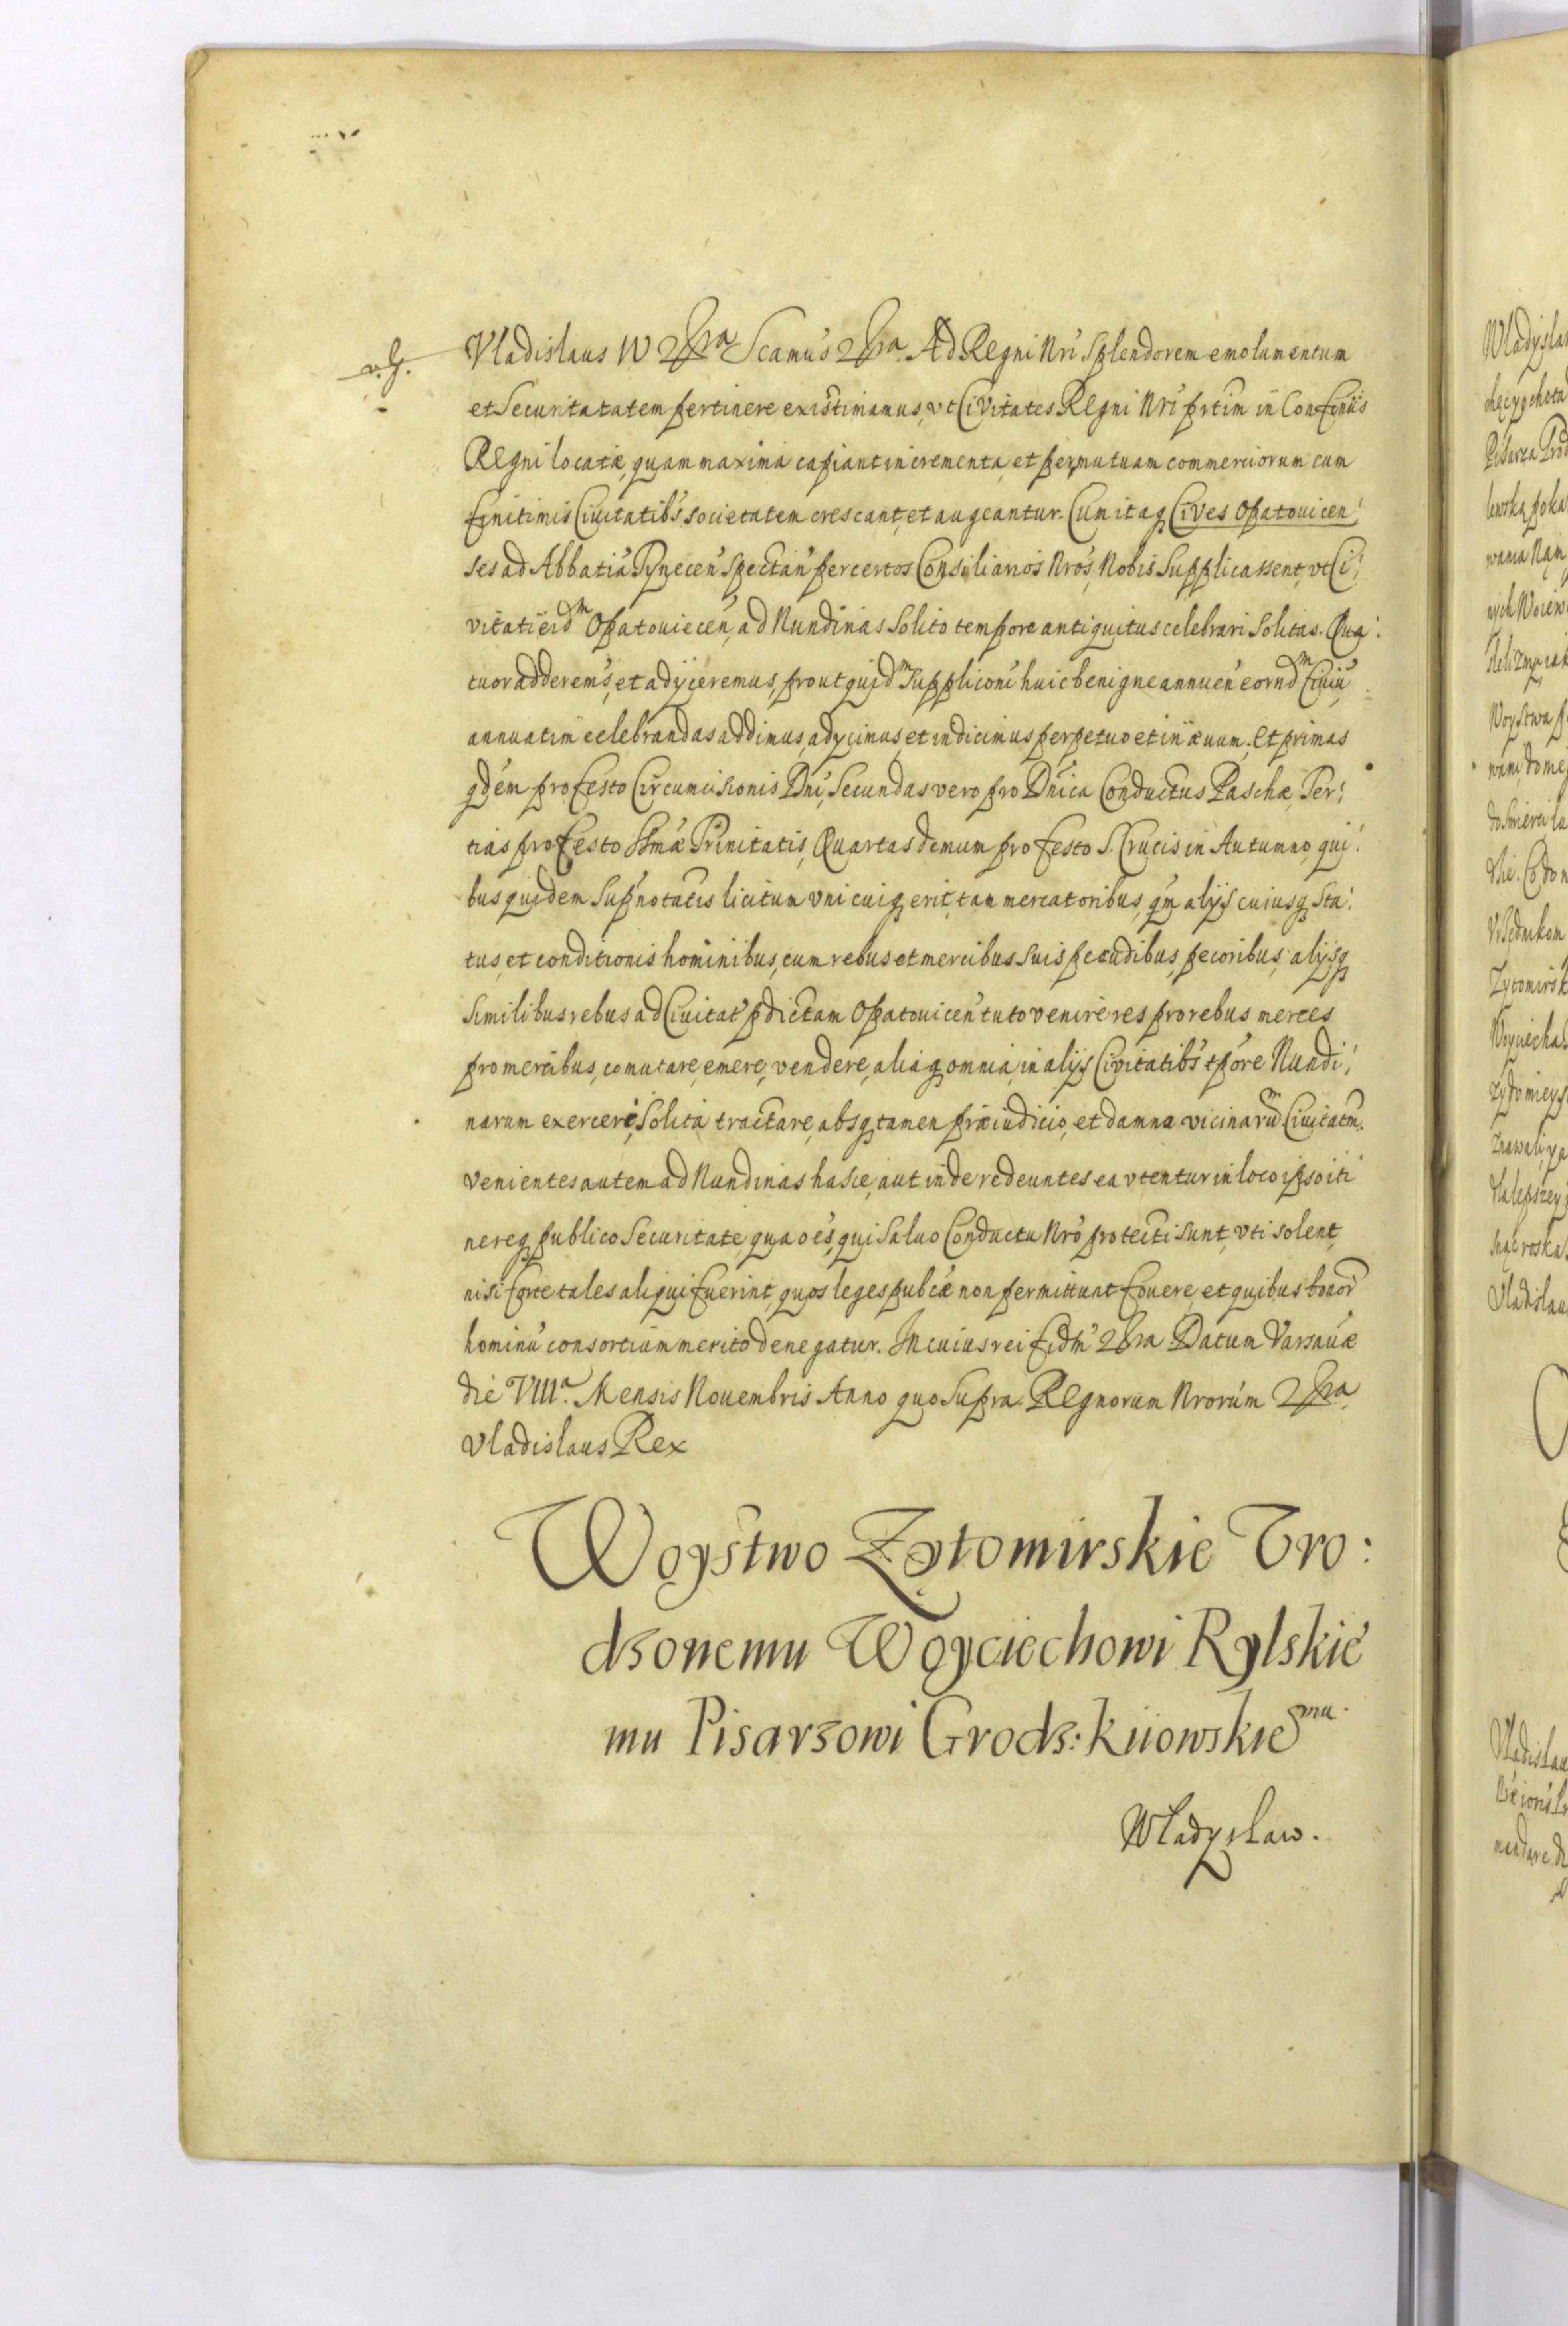 Vladislaus IV &tra Scamus &tra. Ad Regni Nri Splendorem emolumentum
et Securitatatem pertinere existimamus, vt Civitates Regni Nri prtim in Confinijs
Regni locatæ, quam maxima capiant incrementa, et per mutuam commerciorum cum
finitimis Ciuitatibs societatem crescant, et augeantur. Cum itaq Cives Opatouicen:
ses ad Abbatiã Tynecen Spectan per certos Consiliarios Nros, Nobis Supplicassent, vt Ci:
vitati eidm Opatouiecen, ad Nundinas Solito tempore antiquitus celebrari Solitas. Qua:
tuor adderems, et adijceremus, prout quidm Supplicõni huic benigne annuen eorndm Ciuiũ
annuatim celebrandas addimus, adycimus, et indicimus perpetuo et in æuum. Et primas
qdem pro festo Circumcisionis Dni, Secundas vero pro Dnica Conductus Paschæ Ter:
tias pro festo SSmæ Trinitatis, Quartas demum pro festo S. Crucis in Autumno, qui:
bus quidem Supnotatis licitum vnicuiq erit, tam mercatoribus, qm alijs cuiusq Sta:
tus, et conditionis hominibus, cum rebus et mercibus suis pecudibus, pecoribus, alijsq
Similibus rebus ad Ciuitat pdictam Opatouicen tuto venire res pro rebus merces
pro mercibus, comutare, emere, vendere, aliaq omnia, in alijs Civitatibs tpore Nundi:
narum exerceri Solita tractare, absq tamen præiudicio, et damna vicinarũ Ciuitatm.
Venientes autem ad Nundinas hasce, aut inde redeuntes ea vtentur in loco ipso iti
nereq publico Securitate, qua oẽs, qui Saluo Conductu Nro protecti sunt, vti solent,
nisi forte tales aliqui fuerint, quos leges pubcæ non permittunt fouere, et quibus bonor
hominũ consortium merito denegatur. In cuius rei fidm &tra Datum Varsauæ
die VIIIa. Mensis Nouembris Anno quo Supra. Regnorum Nrorum &tra
Vladislaus Rex
Woystwo Zytomirskie Vro:
dzonemu Woyciechowi Rylskie
mu Pisarzowi Grodz: Kiiowskiemu.
Władysław.